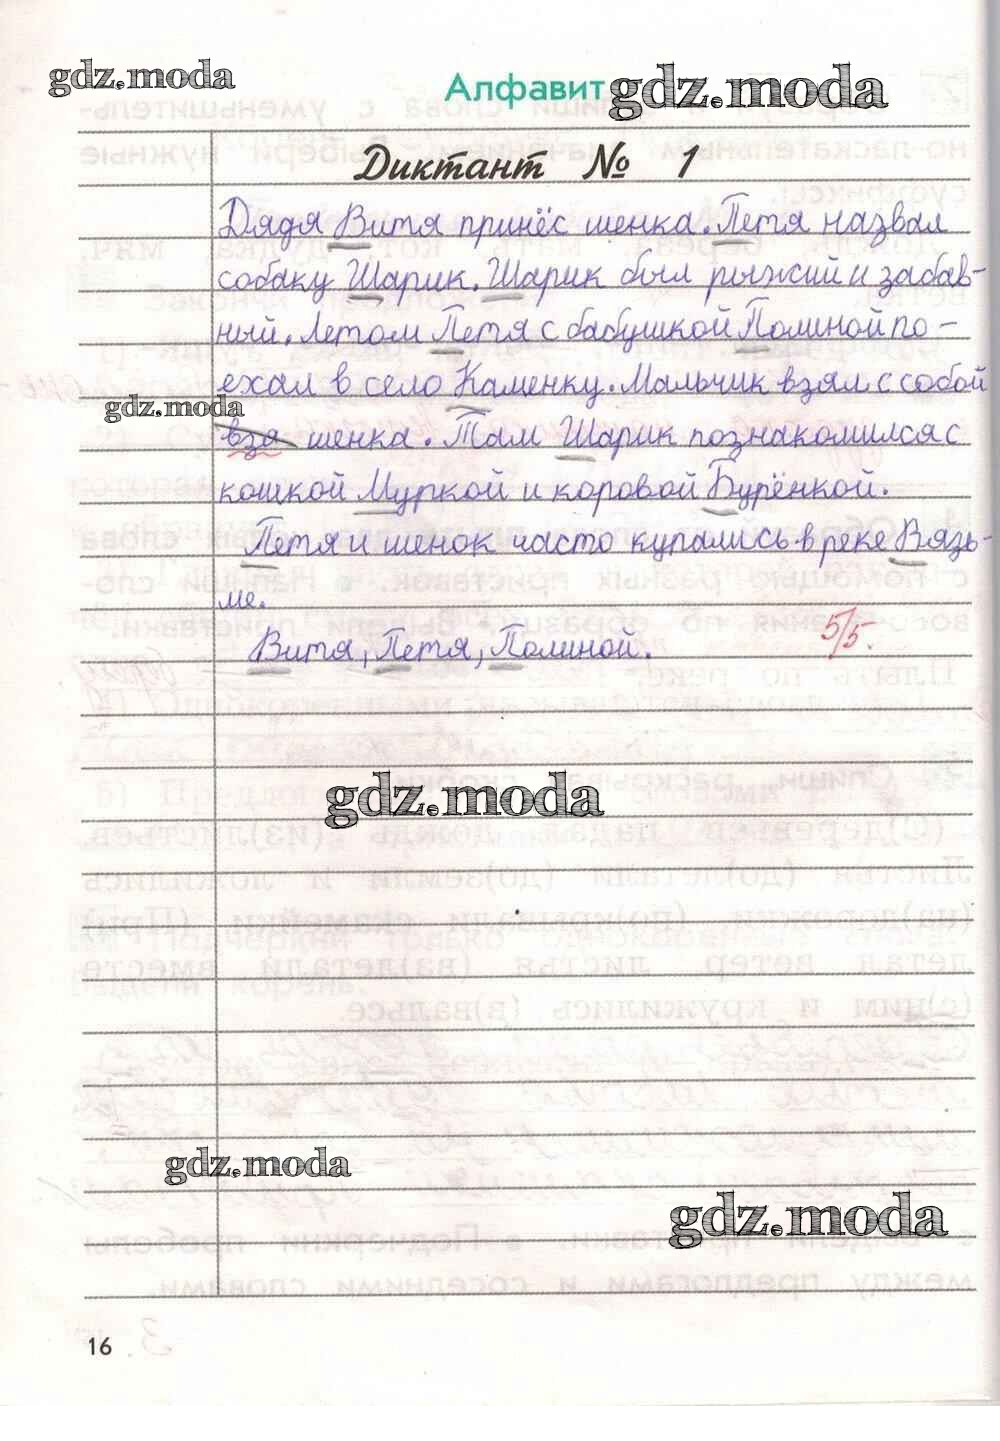 gdz.moda
Алфавит gdz.moda
Диктант № 1
Дядя Витя принёс щенка. Петя назвал
собаку Шарик. Шарик был рыжий и забав-
ный. Летом Петя с бабушкой Полиной по-
ехал в село Каменку. Мальчик взял с собой
gdz.moda
взя щенка. Там Шарик познакомился с
кошкой Муркой и коровой Бурёнкой.
Петя и щенок часто купались в реке Вязь-
ме.
5/5.
Витя, Петя, Полиной.
gdz.moda
gdz.moda
gdz.moda
16